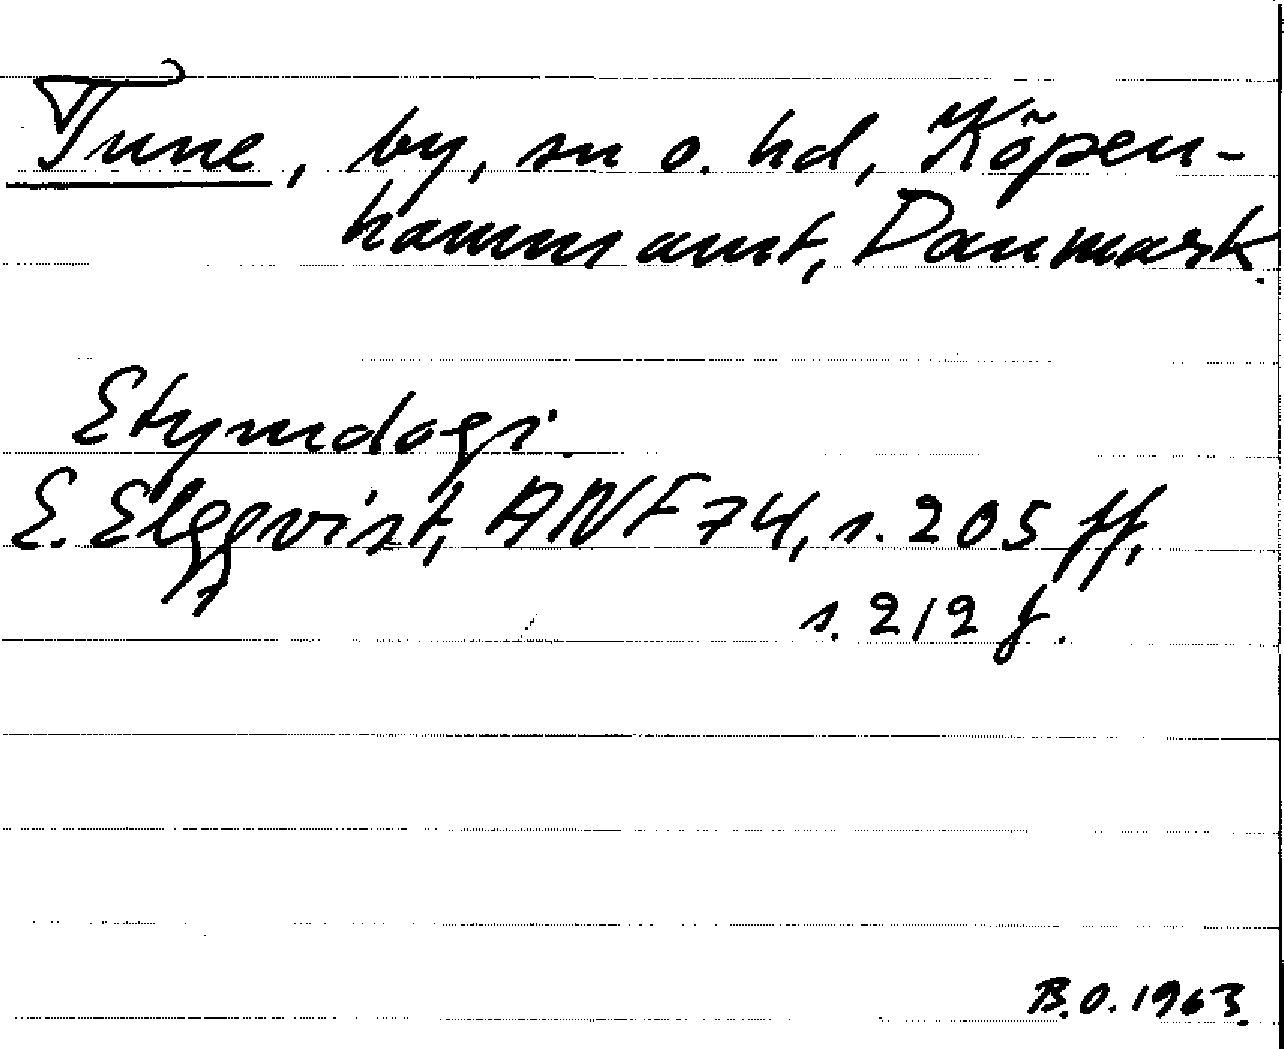 Tune, by, sn o. hd, Köpen-
hamns amt, Danmark.
Etymologi.
E. Elgqvist, ANF 74, s. 205 ff,
s. 212 f.
B.O. 1963.